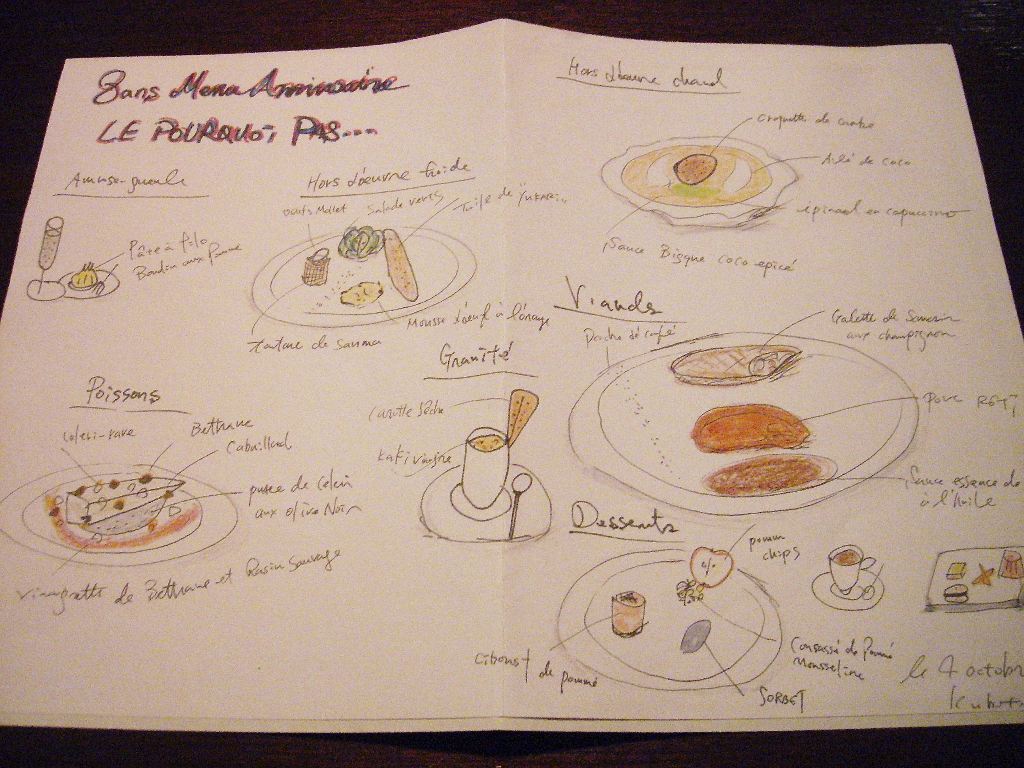 8ans Menu Anniversaire
LE POURQUOi PAS...
Amuse-gueule
Pâte à filo
Boudin aux Pomme
Hors d'oeuvre froide
oeufs Mollet
Salade verts
Tuile de "YUKARI"..
Mousse d'oeuf à l'orange
tartare de sanma
Hors d'oeuvre chaud
croquette de
Ailé de coco
epinard en capuccino
Sauce Bisque coco epicé
Poissons
Celeri-rave
Bettrave
Cabaillaud
puree de Celeri
aux olive Noir
Vinaigrette de Bettrave et Raisin Sauvage
Granité
Carotte Sèche
kaki vinaigre
Viande
Poudre de café
Galette de Sarrasin
aux champignon
Porc RÔTI
Sauce essence de
à l'Huile
Desserts
pomme
chips
Ciboust de pomme
Concassé de Pomme
Mousseline
SORBET
le 4 octobr